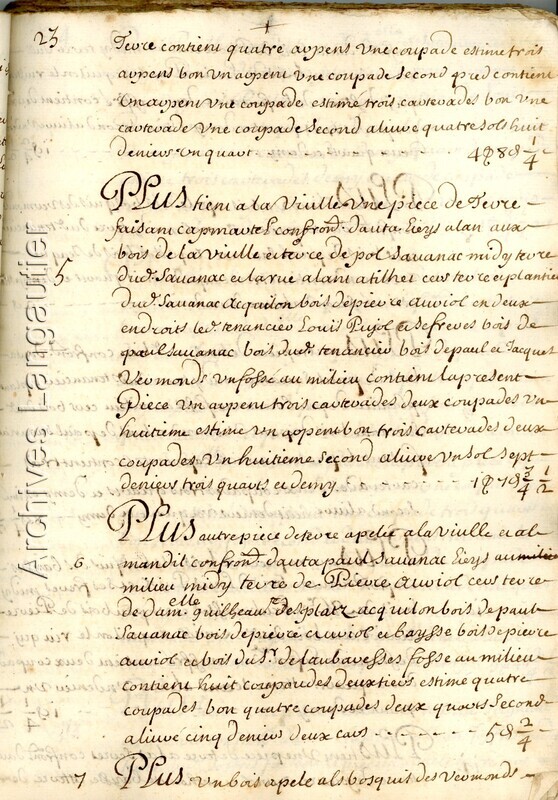 23
Terre contient quatre arpens une coupade estime trois
arpens bon un arpent une coupade second qred contient
un arpent une coupade estime trois cartevades bon une
cartevade une coupade second alivre quatre sols huit
deniers un quart 4 8 1/4
PLus tient a la Viulle une piece de Terre
faisant capmartel confron.t d'auta Eieys alan aux
bois de la viulle et terre de pol Savanac midy terre
5 dud. Savanac et la rue alant a tilhet cers terre et plantie
dud. Savanac Acquilon bois de pierre auriol en deux
endroits led. tenancier Louis Pujol et ses freres bois de
paul Savanac bois dud. tenancier bois de paul et Jacques
Vermonds un fossé au milieu contient la present
Piece un arpent trois cartevades deux coupades un
huitieme estime un arpent bon trois cartevades deux
coupades un huitieme second alivre un sol sept
deniers trois quarts et demy - - - - - - - 1 7 3/4 1/2
PLus autre piece de terre apelée a la viulle et al
6 mandil confron.t d'auta paul Savanac Eieys au
milieu midy terre de Pierre auriol cers terre
de dam.elle guilheaume desplatz acquilon bois de paul
Savanac bois de pierre auriol et baysse bois de pierre
auriol et bois du S.r de laubaresses fosse au milieu
contient huit coupades deux tiers estime quatre
coupades bon quatre coupades deux quarts second
alivre cinq deniers deux cars - - - - - - - 5 2/4
7 PLus un bois apelé als bosquis des vermonds
Archives Langautier